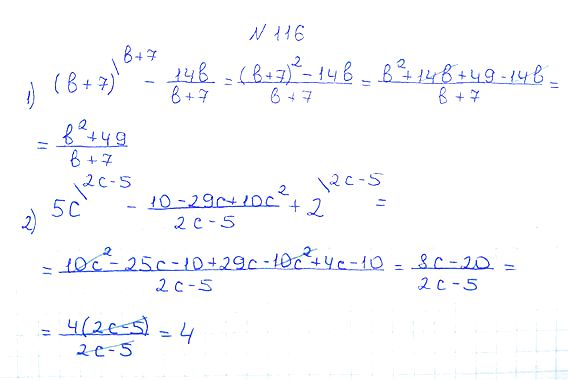 N 116
1) (b+7)\b+7 - 14b/(b+7) = ((b+7)² - 14b)/(b+7) = (b² + 14b + 49 - 14b)/(b+7) =
= (b² + 49)/(b+7)
2) 5c\2c-5 - (10 - 29c + 10c²)/(2c-5) + 2\2c-5 =
= (10c² - 25c - 10 + 29c - 10c² + 4c - 10)/(2c-5) = (8c - 20)/(2c-5) =
= 4(2c-5)/(2c-5) = 4